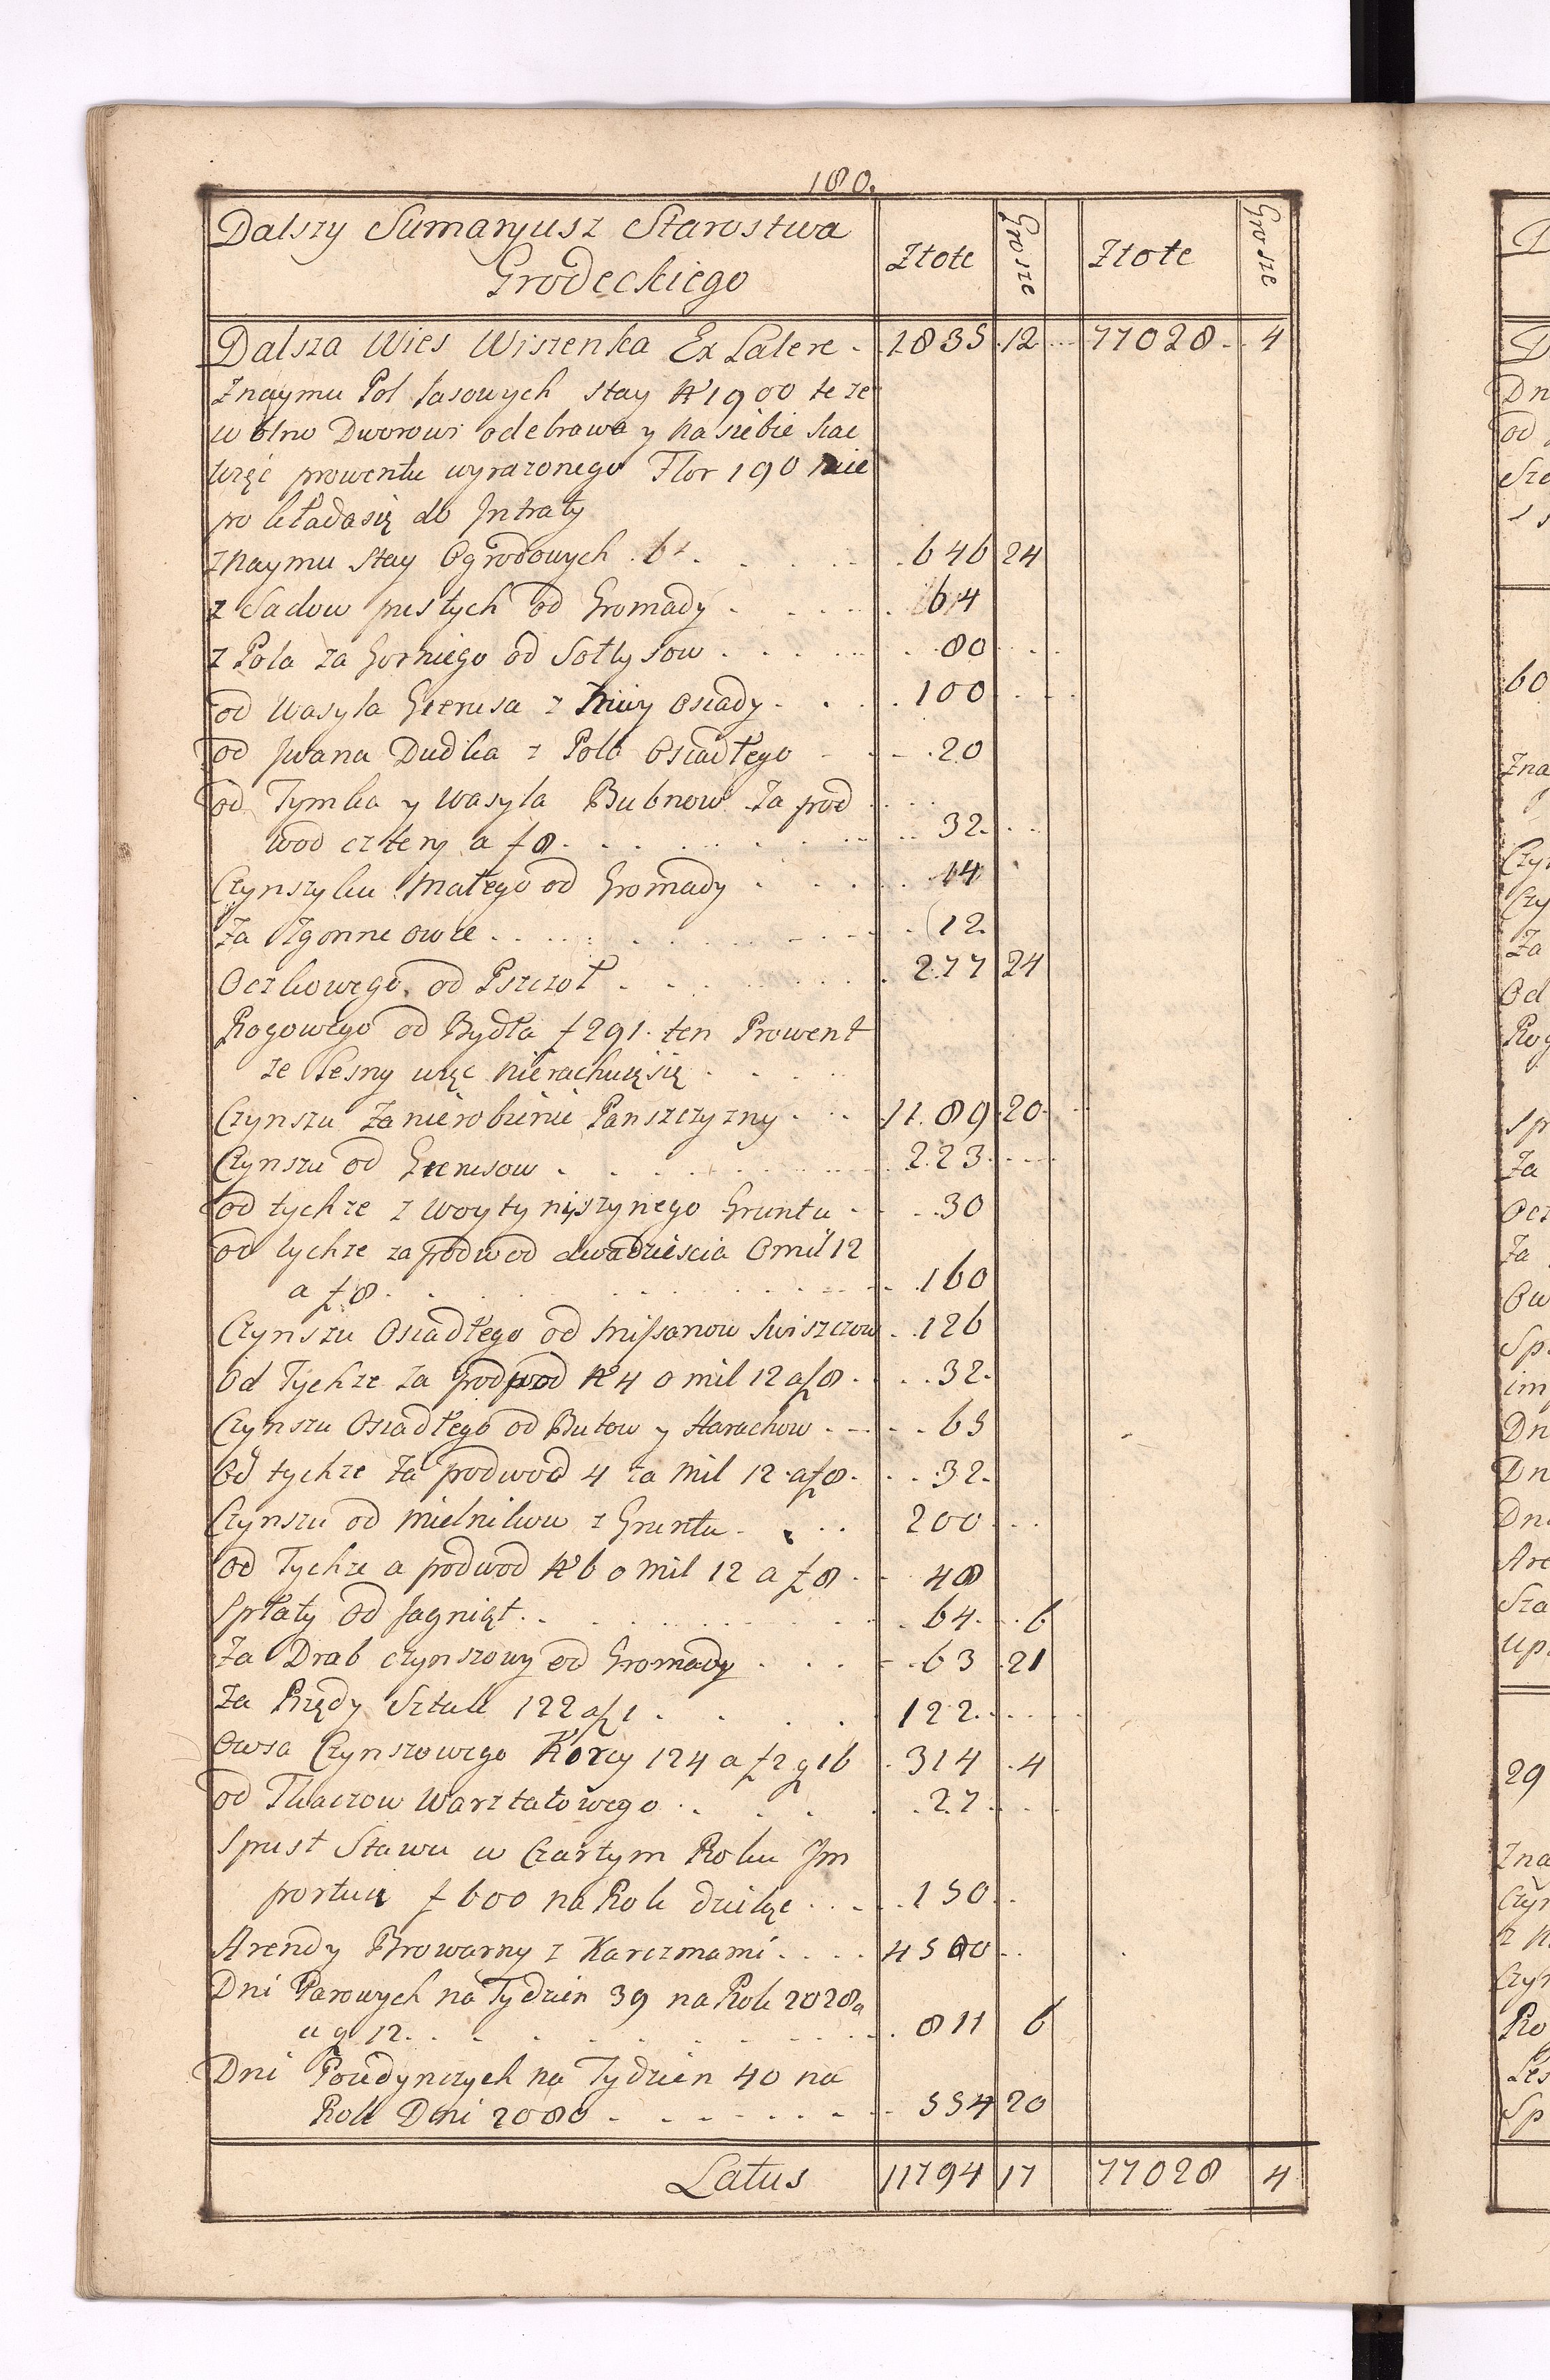 180.
Dalszy Sumaryusz Starostwa Grodeckiego Złote Grosze Złote Grosze
Dalsza Wies Wiszenka Ex Latere 1835 12 77028 4
Znaymu Pol Lasowych stay No 1900 te ze
wolno Dworowi odebrawa y na siebie siac
więc prowentu wyrazonego Flor 190 nie
po kładasię do Jntraty
znaymu Stay Ogrodowych 646 24
z Sadow pustych od Gromady 64
z Pola za Gorniego od Sołtysow 80
od Wasyla Gierusa z Osiady 100
od Jwana Dudka z Pola Osiadłego 20
od Tymka y Wasyla Bubnow Za pod
wod cztery a f 8 32
Czynszyku małego od Gromady 14
Za Zgonne owce 12
Oczkowego od Pszczoł 277 24
Rogowego od Bydła f 291 ten Prowent
ze Lesny więc nierachuięsię
Czynszu Zanierobienie Panszczyzny 1189 20
Czynszu od Gierusow 223
od tychze z Woytynijszynego Gruntu 30
od tychze za podwod dwadziescia O mil 12
a f 8 160
Czynszu Osiadłego od Swiszczow 126
Od Tychze za podwod No 4 o mil 12 a f 8 32
Czynszu Osiadłego od Butow y Harachow 65
Od tychze Za podwod 4 za Mil 12 a f 8 32
Czynszu od Mielnikow z Gruntu 200
od Tychze a podwod No 6 o Mil 12 a f 8 48
Spłaty Od Jagniąt 64 6
Za Drab czynszowy od Gromady 63 21
Za Przędy Sztuk 122 a f 1 122
Owsa Czynszowego Korcy 124 a f 2 g 16 314 4
od Tkaczow Warztatowego 27
Spust Stawu w Czartym Roku Jm
portuię f 600 na Rok dzieląc 150
Arendy Browarny z Karczmami 4500
Dni Parowych na Tydzien 39 na Rok 2028
a g 12 811 6
Dni Poiedynczych na Tydzien 40 na
Rok Dni 2080 554 20
Latus 11794 17 77028 4